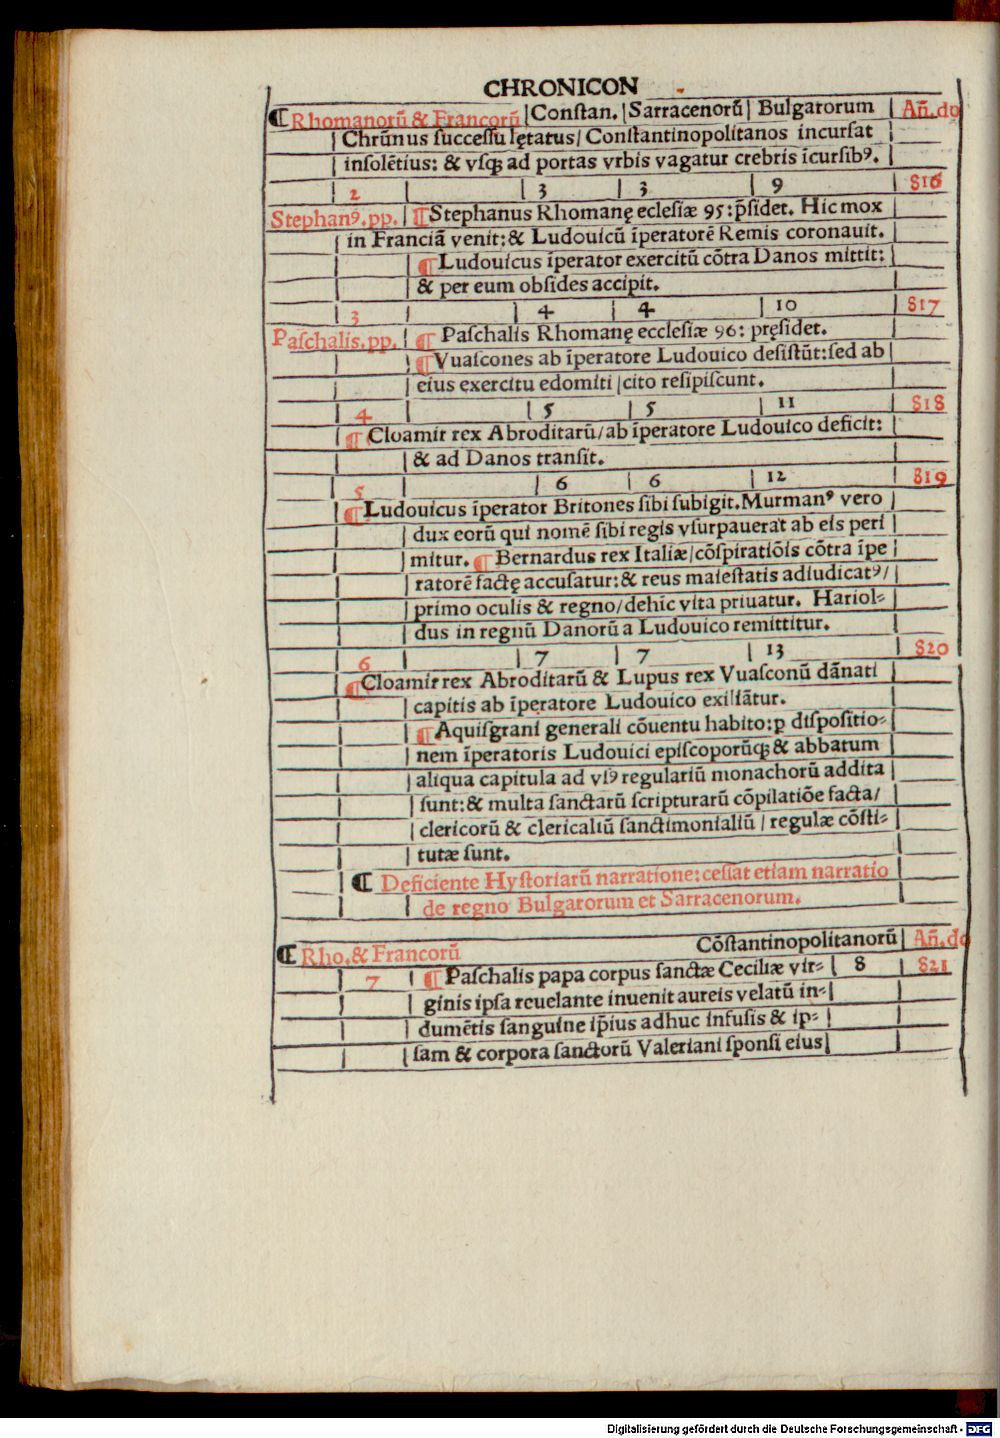 CHRONICON
¶ Rhomanorũ & Francorũ | Conſtan. | Sarracenorũ | Bulgarorum | Añ.do
Chrũnus ſucceſſu lętatus/ Conſtantinopolitanos incurſat
inſolẽtius: & vſqꝫ ad portas vrbis vagatur crebris ĩcurſibꝰ.
2 3 3 9 816
Stephanꝰ.pp. ¶Stephanus Rhomanę ecleſiæ 95: p̃ſidet. Hic mox
in Franciã venit: & Ludouicũ ĩperatorẽ Remis coronauit.
¶Ludouicus ĩperator exercitũ cõtra Danos mittit:
& per eum obſides accipit.
3 4 4 10 817
Paſchalis.pp. ¶ Paſchalis Rhomanę eccleſiæ 96: pręſidet.
¶Vuaſcones ab ĩperatore Ludouico deſiſtũt: ſed ab
eius exercitu edomiti /cito reſipiſcunt.
4 5 5 11 818
¶ Cloamir rex Abroditarũ/ab ĩperatore Ludouico deficit:
& ad Danos tranſit.
5 6 6 12 819
¶Ludouicus ĩperator Britones ſibi ſubigit. Murmanꝰ vero
dux eorũ qui nomẽ ſibi regis vſurpauerat ab eis peri
mitur. ¶ Bernardus rex Italiæ/cõſpiratiõis cõtra ĩpe
ratorẽ factę accuſatur: & reus maieſtatis adiudicatꝰ/
primo oculis & regno/dehĩc vita priuatur. Hariol⸗
dus in regnũ Danorũ a Ludouico remittitur.
6 7 7 13 820
¶Cloamir rex Abroditarũ & Lupus rex Vuaſconũ dãnati
capitis ab ĩperatore Ludouico exiliãtur.
¶Aquiſgrani generali cõuentu habito: ꝑ diſpoſitio⸗
nem ĩperatoris Ludouici epiſcoporũqꝫ & abbatum
aliqua capitula ad vſꝰ regulariũ monachorũ addita
ſunt: & multa ſanctarũ ſcripturarũ cõpilatiõe facta/
clericorũ & clericaliũ ſanctimonialiũ / regulæ cõſti⸗
tutæ ſunt.
¶ Deficiente Hyſtoriarũ narratione: ceſſat etiam narratio
de regno Bulgarorum et Sarracenorum.
¶ Rho.& Francorũ Cõſtantinopolitanorũ | Añ.do
7 ¶Paſchalis papa corpus ſanctæ Ceciliæ vir⸗ | 8 | 821
ginis ipſa reuelante inuenit aureis velatũ in⸗
dumẽtis ſanguine ip̃ius adhuc infuſis & ip⸗
ſam & corpora ſanctorũ Valeriani ſponſi eius
Digitalisierung gefördert durch die Deutsche Forschungsgemeinschaft - DFG